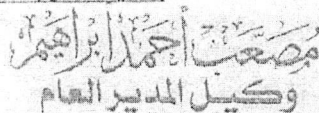 مصعب أحمد إبراهيم
وكيل المدير العام